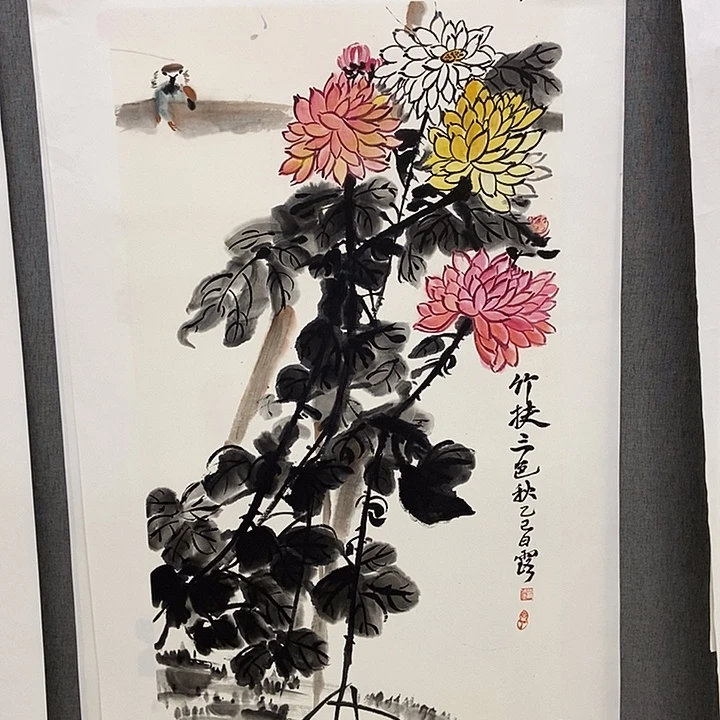 竹扶三色秋乙巳白露